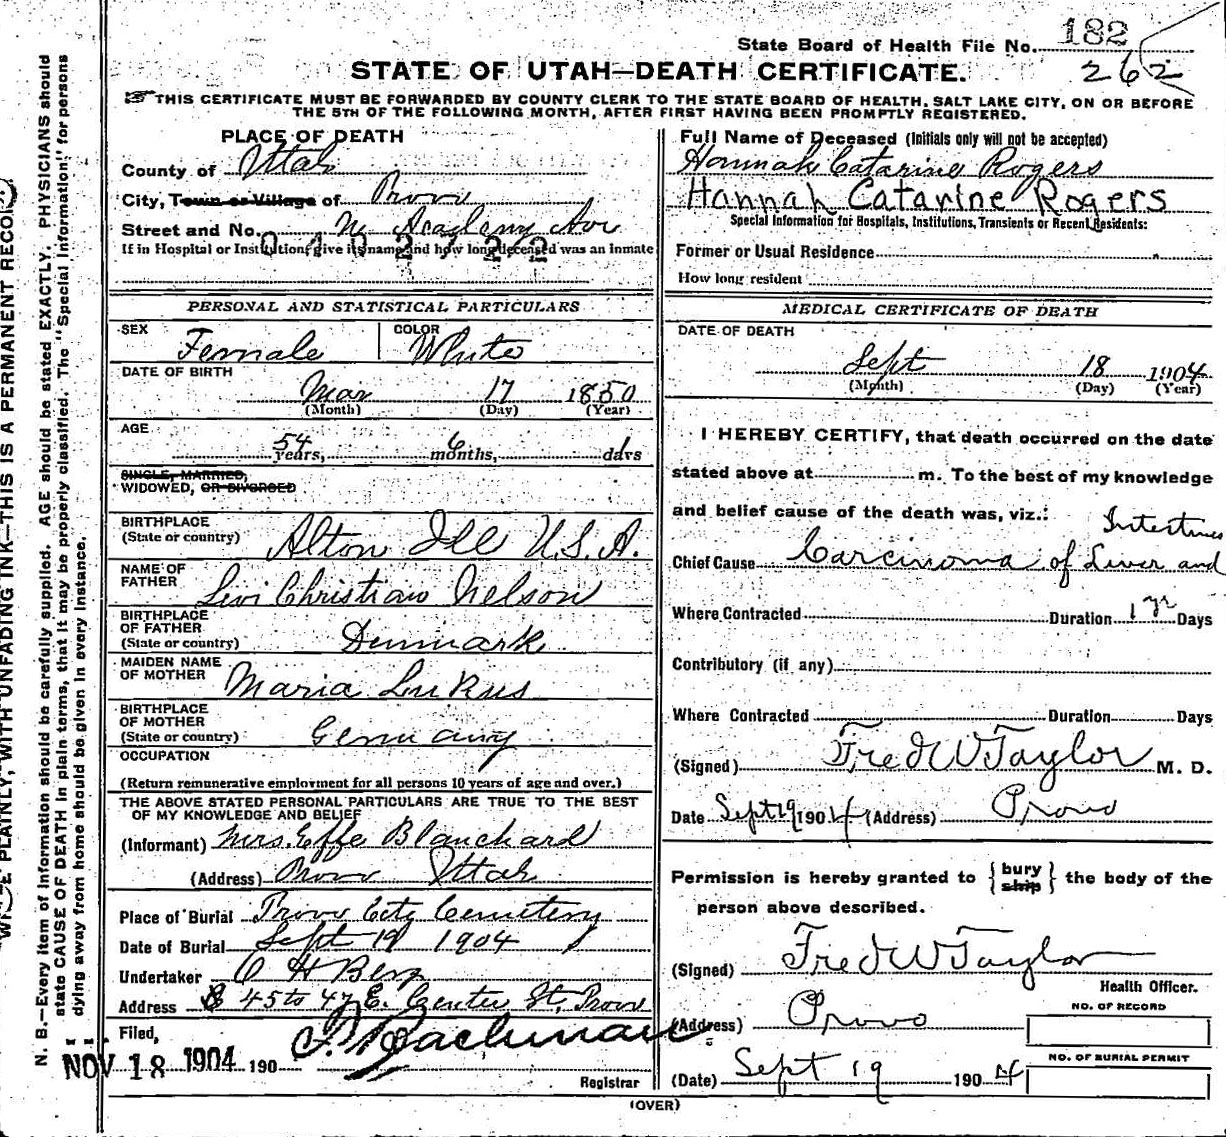 State Board of Health File No. 182
262
STATE OF UTAH—DEATH CERTIFICATE.
THIS CERTIFICATE MUST BE FORWARDED BY COUNTY CLERK TO THE STATE BOARD OF HEALTH, SALT LAKE CITY, ON OR BEFORE
THE 5TH OF THE FOLLOWING MONTH, AFTER FIRST HAVING BEEN PROMPTLY REGISTERED.
PLACE OF DEATH
County of Utah
City, Town or Village of Provo
Street and No. N. Academy Ave
If in Hospital or Institution, give its name and how long deceased was an inmate
PERSONAL AND STATISTICAL PARTICULARS
SEX Female COLOR White
DATE OF BIRTH
Mar 17 1850
(Month) (Day) (Year)
AGE
54 years, 6 months, days
SINGLE, MARRIED,
WIDOWED, OR DIVORCED
BIRTHPLACE
(State or country) Alton Ill U.S.A.
NAME OF
FATHER Levi Christian Nelson
BIRTHPLACE
OF FATHER
(State or country) Denmark
MAIDEN NAME
OF MOTHER Maria Lukus
BIRTHPLACE
OF MOTHER
(State or country) Germany
OCCUPATION
(Return remunerative employment for all persons 10 years of age and over.)
THE ABOVE STATED PERSONAL PARTICULARS ARE TRUE TO THE BEST
OF MY KNOWLEDGE AND BELIEF
(Informant) Mrs. Effe Blanchard
(Address) Provo Utah
Place of Burial Provo City Cemetery
Date of Burial Sept 19 1904
Undertaker O H Berg
Address 45 to 47 E. Center St, Provo
Filed,
NOV 18 1904 190
Registrar
Full Name of Deceased (Initials only will not be accepted)
Hannah Catarine Rogers
Hannah Catarine Rogers
Special Information for Hospitals, Institutions, Transients or Recent Residents:
Former or Usual Residence
How long resident
MEDICAL CERTIFICATE OF DEATH
DATE OF DEATH
Sept 18 1904
(Month) (Day) (Year)
I HEREBY CERTIFY, that death occurred on the date
stated above at m. To the best of my knowledge
and belief cause of the death was, viz.:
Intestines
Chief Cause Carcinoma of Liver and
Where Contracted Duration 1 yr Days
Contributory (if any)
Where Contracted Duration Days
(Signed) Fred W Taylor M. D.
Date Sept 19 1904 (Address) Provo
Permission is hereby granted to { bury ship } the body of the
person above described.
(Signed) Fred W Taylor
Health Officer.
NO. OF RECORD
(Address) Provo
NO. OF BURIAL PERMIT
(Date) Sept 19 1904
(OVER)
PLAINLY, WITH UNFADING INK—THIS IS A PERMANENT RECORD.
N. B.—Every item of information should be carefully supplied. AGE should be stated EXACTLY. PHYSICIANS should
state CAUSE OF DEATH in plain terms, that it may be properly classified. The "Special Information" for persons
dying away from home should be given in every instance.